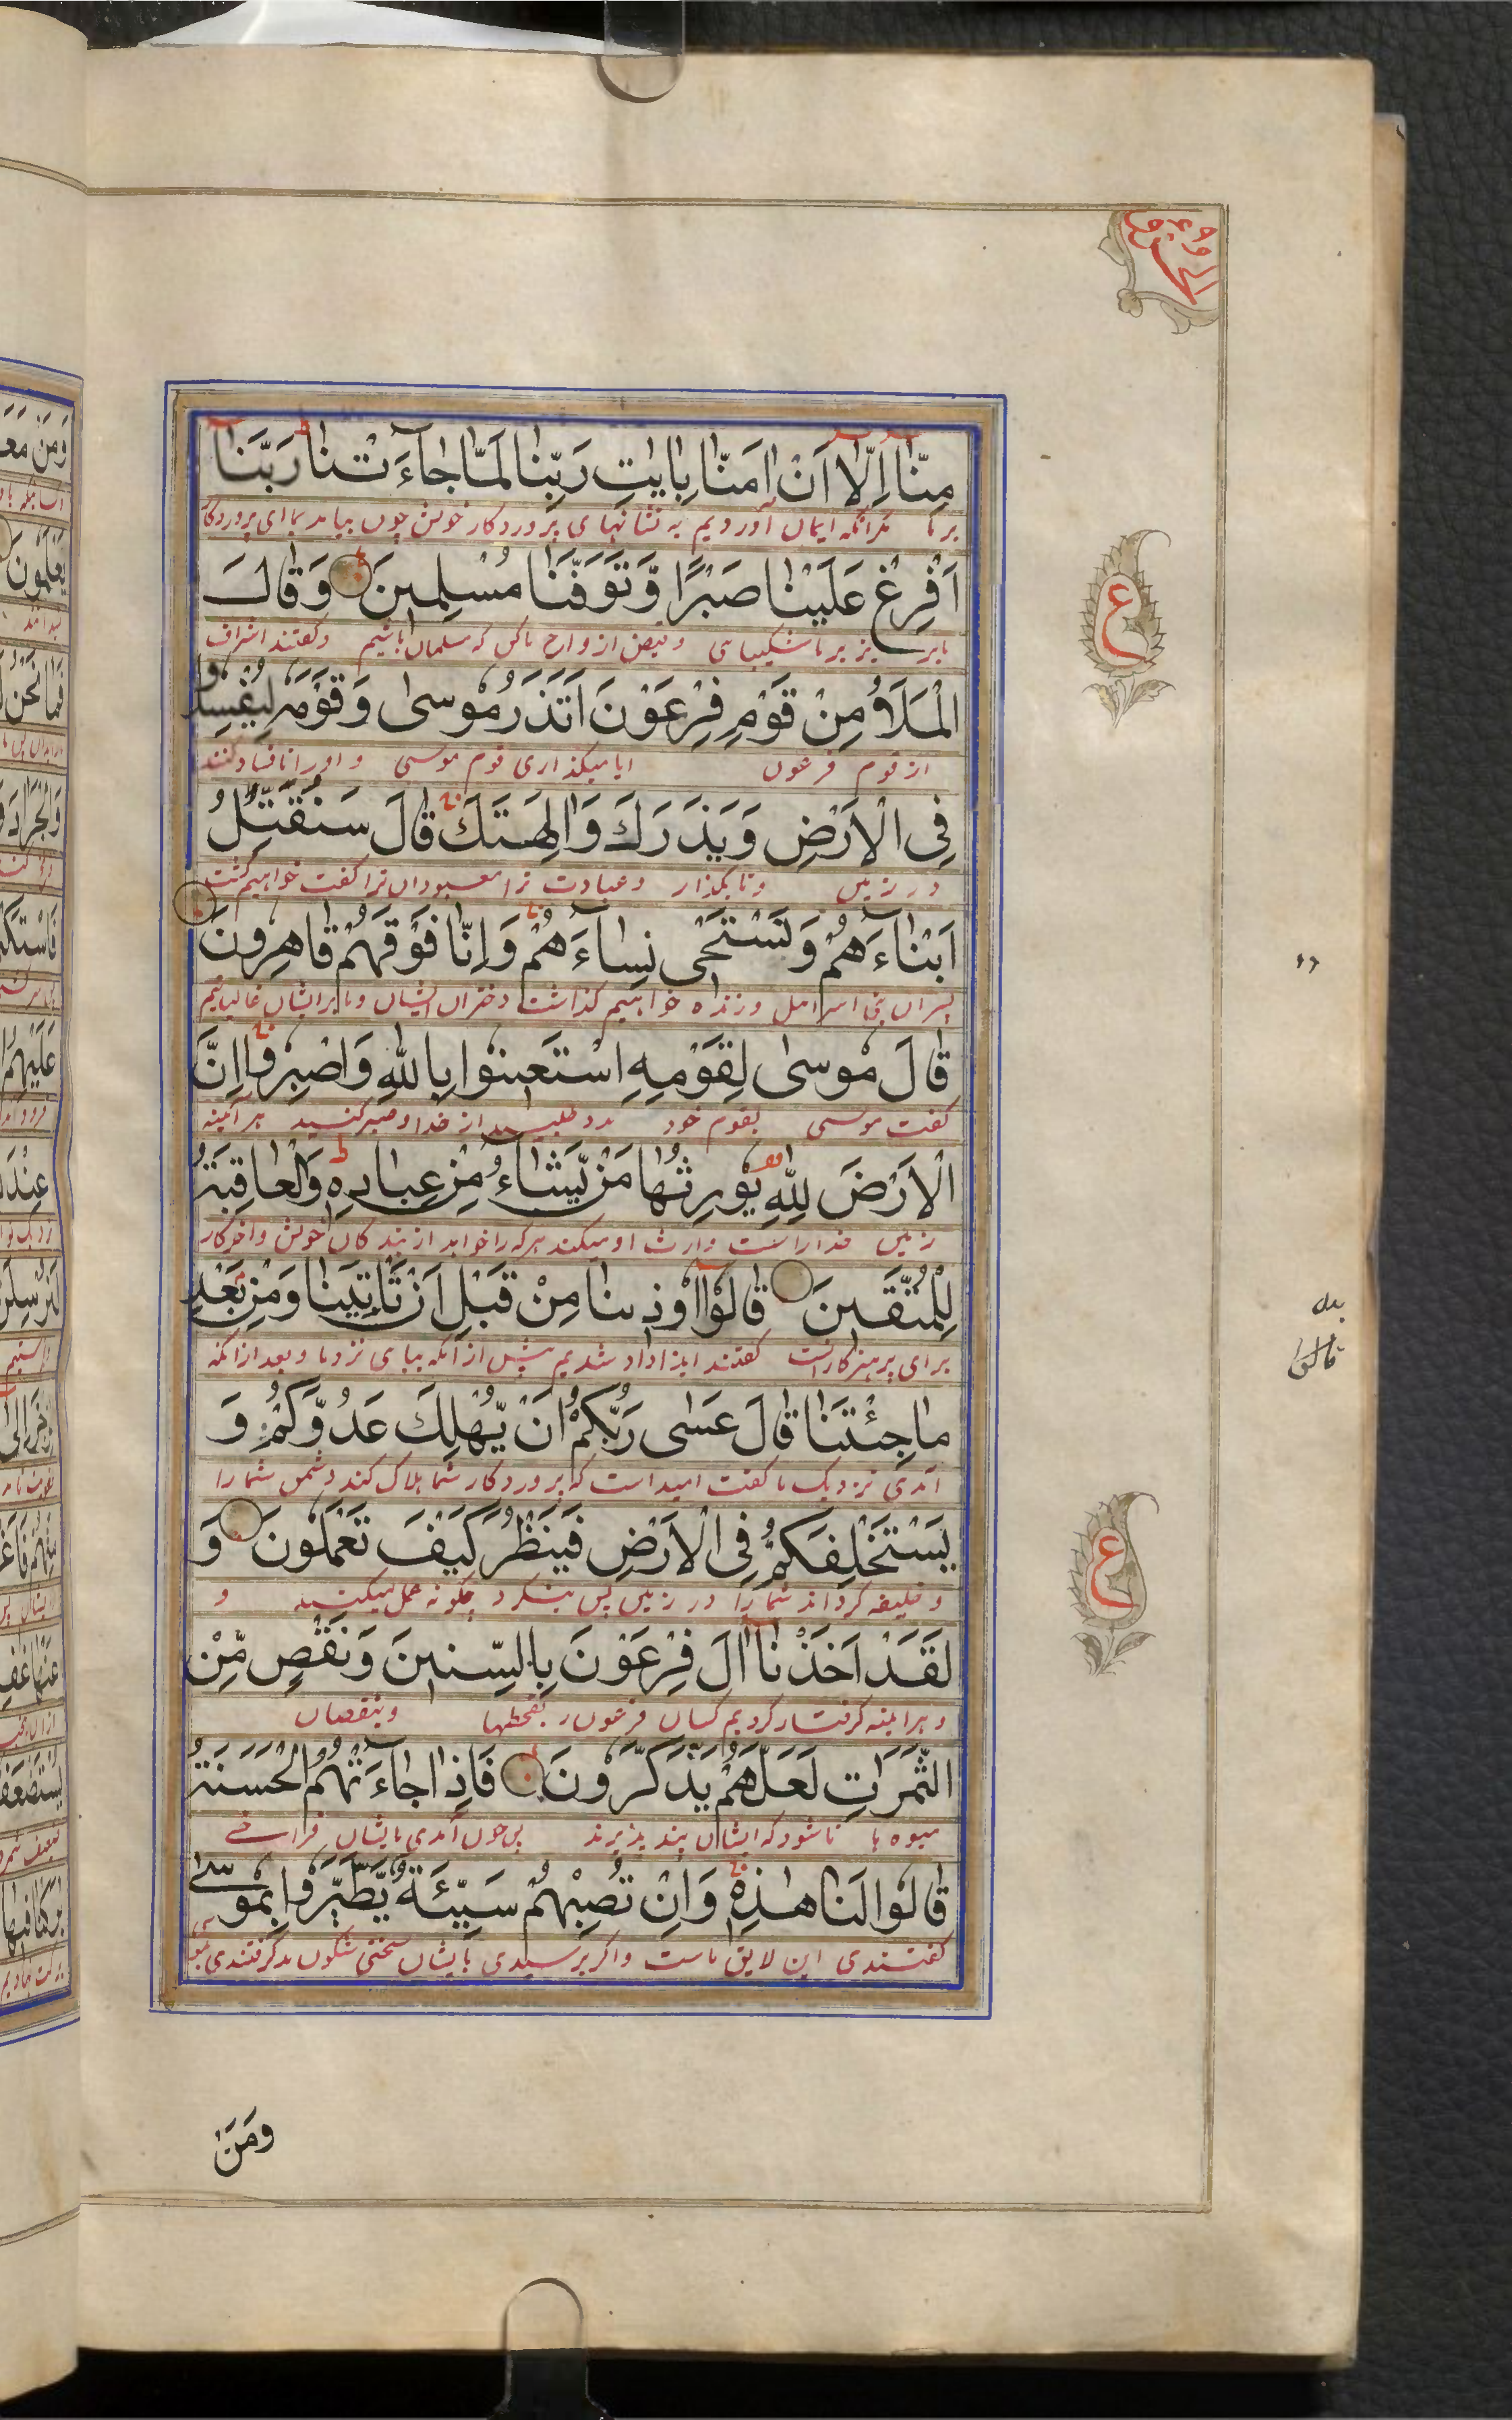 مِنَّا اِلَّا اَنْ اٰمَنَّا بِاٰیٰتِ رَبِّنَا لَمَّا جَآءَ تْنَا رَبَّنَا
بر ما مکر انکه ایمان آوردیم به نشانهای پروردکار خویش چون بیامد بما ای پروردکار
اَفْرِغْ عَلَیْنَا صَبْرًا وَّتَوَفَّنَا مُسْلِمِینَ وَقَالَ
یز بر ما شکیبایی و قبض ارواح ما کن که مسلمان باشیم و کفتند اشراف
الْمَلَاُ مِنْ قَوْمِ فِرْعَوْنَ اَتَذَرُ مُوسٰی وَقَوْمَهٗ لِیُفْسِدُوا
از قوم فرعون ایا میکذاری قوم موسی و اورا تا فساد کنند
فِی الْاَرْضِ وَیَذَرَكَ وَاٰلِهَتَكَ قَالَ سَنُقَتِّلُ
در زمین و تا بکذار و عبادت ترا معبودان ترا کفت خواهیم کشت
اَبْنَآءَهُمْ وَنَسْتَحْیٖ نِسَآءَهُمْ وَاِنَّا فَوْقَهُمْ قَاهِرُونَ
پسران بنی اسرائیل و زنده خواهیم کذاشت دختران ایشان و ما بر ایشان غالبانیم
قَالَ مُوسٰی لِقَوْمِهِ اسْتَعِینُوا بِاللّٰهِ وَاصْبِرُوا اِنَّ
کفت موسی بقوم خود مدد طلبید از خدا و صبر کنید هر آئینه
الْاَرْضَ لِلّٰهِ یُورِثُهَا مَنْ یَّشَآءُ مِنْ عِبَادِهٖ وَالْعَاقِبَةُ
زمین خدا راست وارث او میکند هر که را خواهد از بندکان خویش و اخر کار
لِلْمُتَّقِینَ قَالُوْا اُوذِینَا مِنْ قَبْلِ اَنْ تَاْتِیَنَا وَمِنْ بَعْدِ
برای پرهیزکارانست کفتند ایذا داد شدیم پیش از آنکه بیای نزد ما و بعد از انکه
مَا جِئْتَنَا قَالَ عَسٰی رَبُّكُمْ اَنْ یُّهْلِكَ عَدُوَّكُمْ وَ
آمدی نزدیک ما کفت امید است که پروردکار شما هلاک کند دشمن شما را
یَسْتَخْلِفَكُمْ فِی الْاَرْضِ فَیَنْظُرَ كَیْفَ تَعْمَلُونَ وَ
و خلیفه کرداند شما را در زمین پس بنکرد چکونه عمل میکنید و
لَقَدْ اَخَذْنَا اٰلَ فِرْعَوْنَ بِالسِّنِینَ وَنَقْصٍ مِّنْ
و هر اینه کرفتار کردیم کسان فرعون بقحطها و بنقصان
الثَّمَرَاتِ لَعَلَّهُمْ یَذَّكَّرُونَ فَاِذَا جَآءَتْهُمُ الْحَسَنَةُ
میوه ها تا شود که ایشان پند پذیرند پس چون آمدی بایشان فراخی
قَالُوا لَنَا هٰذِهٖ وَاِنْ تُصِبْهُمْ سَیِّئَةٌ یَّطَّیَّرُوا بِمُوسٰی
کفتندی این لایق ماست و اکر برسیدی بایشان سختی شکون بد کرفتندی بمو
سی
ع
ع
قالوا
وَمَنْ